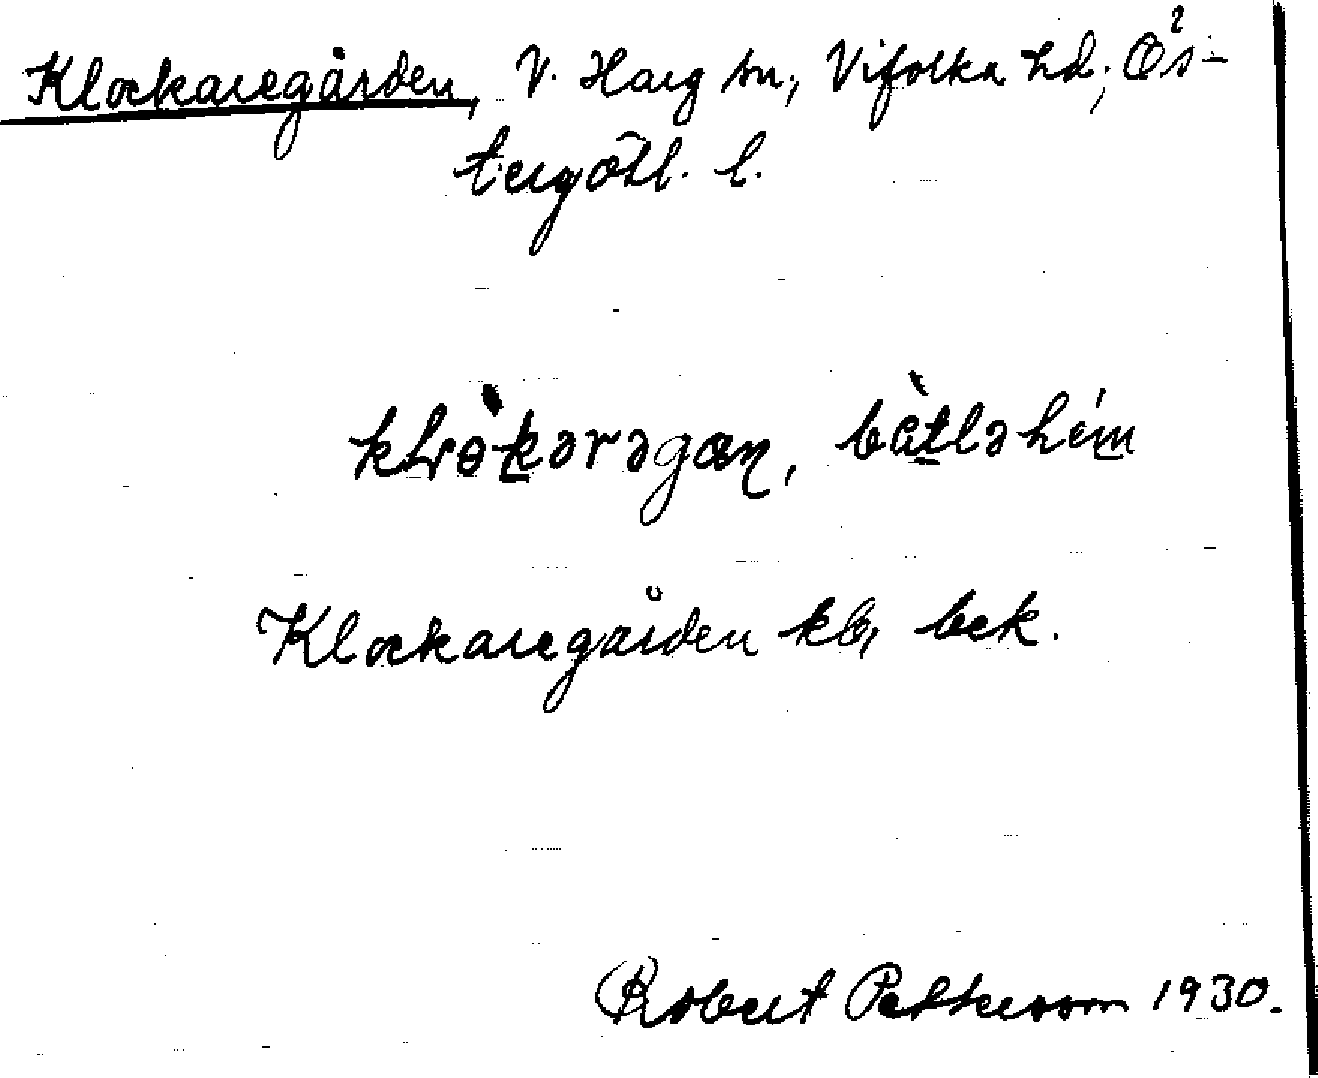 Klockaregården, V. Harg sn., Vifolka hd., Ös-
tergötl. l.
klrò̱kərəgaɳ, bàt̲ləhém̲
Klockaregården kb, bek.
Robert Pettersson 1930.